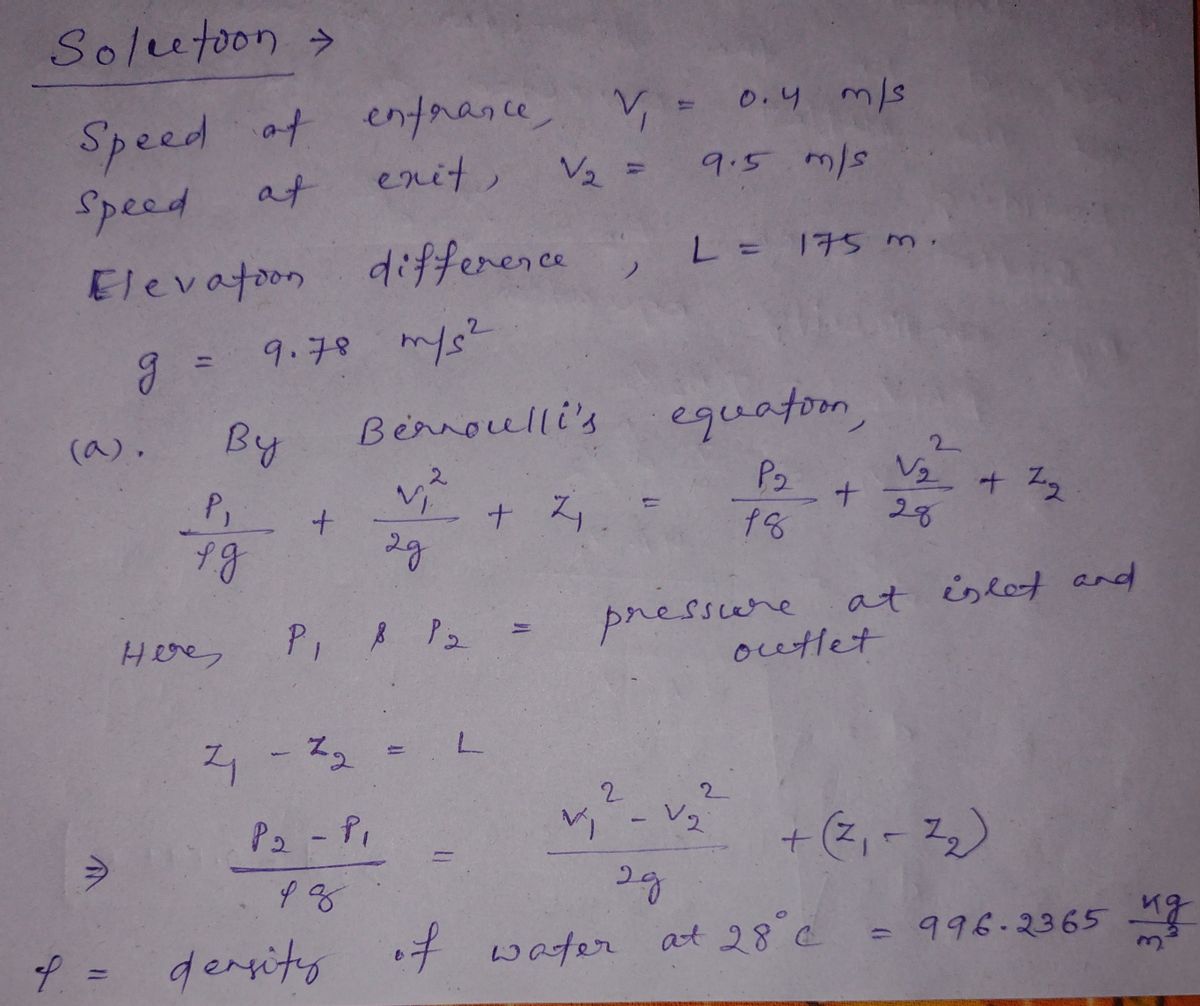 Solution →
Speed at entrance, V₁ = 0.4 m/s
Speed at exit, V₂ = 9.5 m/s
Elevation difference, L = 175 m.
g = 9.78 m/s²
(a). By Bernoulli's equation,
P₁/ρg + V₁²/2g + Z₁ = P₂/ρg + V₂²/2g + Z₂
Here, P₁ & P₂ = pressure at inlet and
outlet
Z₁ - Z₂ = L
⇒ (P₂ - P₁)/ρg = (V₁² - V₂²)/2g + (Z₁ - Z₂)
ρ = density of water at 28°C = 996.2365 kg/m³